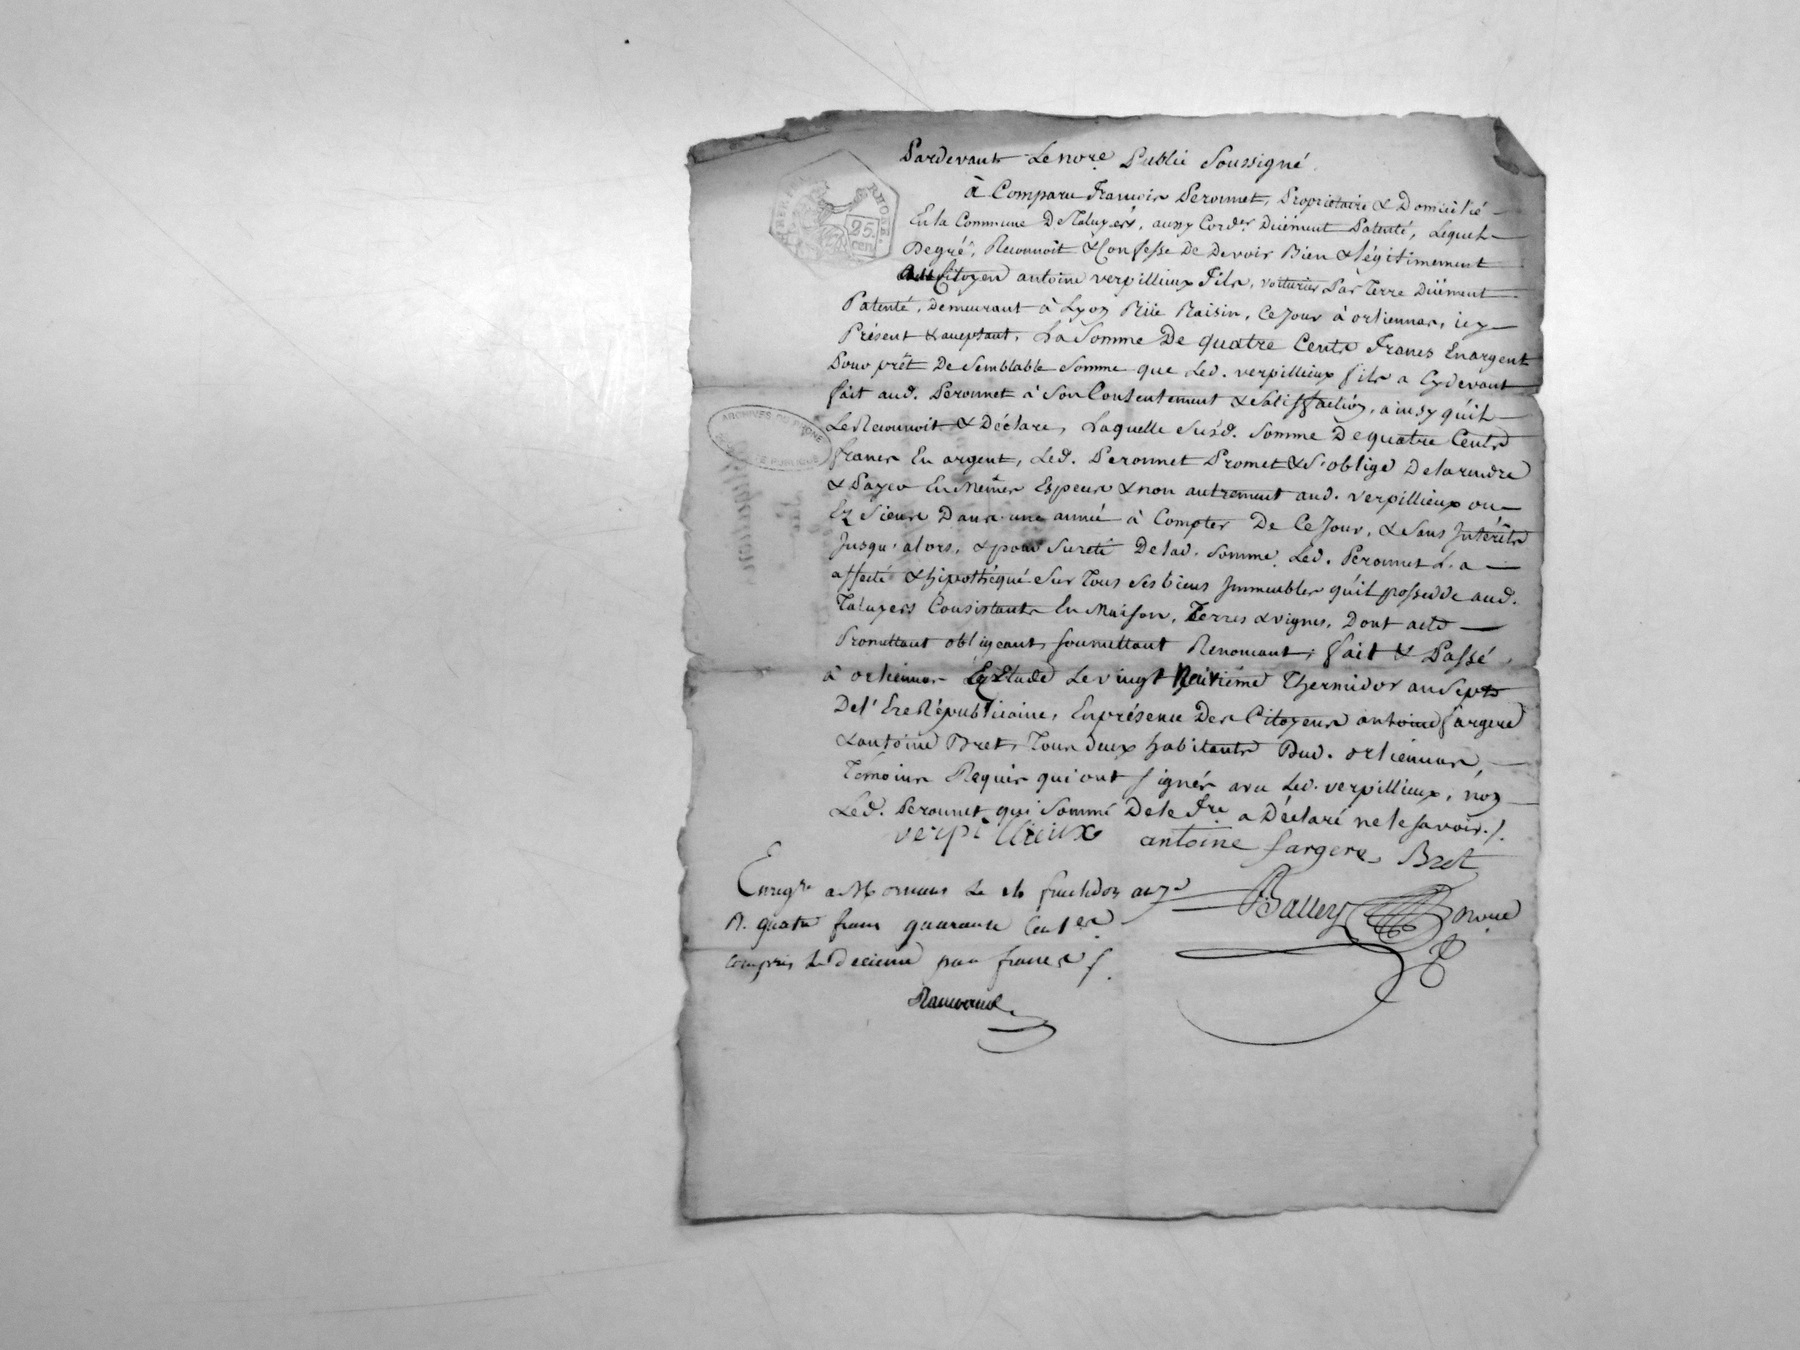 Pardevant Le no.re Public Soussigné
à Comparu François Peronnet, Propriétaire & Domicilié
En la Commune De Taluyers, aussy Cord.er Düement Patenté, Lequel
De gré, Reconnoit & Confesse De Devoir Bien & légitimement
Au Citoyen antoine verpillieux Fils, voiturier Par Terre Düement
Patenté, Demeurant à Lyon Rüe Raisin, Ce Jour à orliennas, icy
Présent & acceptant, La Somme De quatre Cents Francs En argent
Pour prêt De Semblable Somme que Led. verpillieux fils a Cydevant
fait aud. Peronnet à Son Contentement & Satisffaction, ainsy qu'il
Le Reconnoit & Déclare, Laquelle Susd. Somme De quatre Cents
francs En argent, Led. Peronnet Promet & S'oblige De la rendre
& Payer En Mêmes Especes & non autrement aud. verpillieux ou
Ez Siens Dans une année à Compter De Ce Jour, & Sans Intérêts
Jusqu'alors, & pour Sureté De lad. Somme, Led. Peronnet L. a
affecté & hipothéqué Sur Tous Ses biens Immeubles qu'il possedde aud.
Taluyers Consistants En Maison, Terres & vignes, Dont acte
Promettant obligeant, soumettant Renoncant, fait & Passé
à orliennas Ez Etude Le vingt Thermidor an Sept
De l'Ere Républicaine, En présence Des Citoyens antoine fargere
& antoine Bret, Tous deux habitants Dud. orliennas,
Témoins Requis qui ont signés avec Led. verpillieux, non
Led. Peronnet qui Sommé De le f.re a Déclaré ne le savoir./.
verpillieux antoine fargere Bret
Enreg.ré a Mornant Le fructidor an 7.e
R. quatre francs quarante Cent.es
compris Le Décime par franc /.
Balley no.re
ARCHIVES DU RHONE
RHONE.
25. cen.